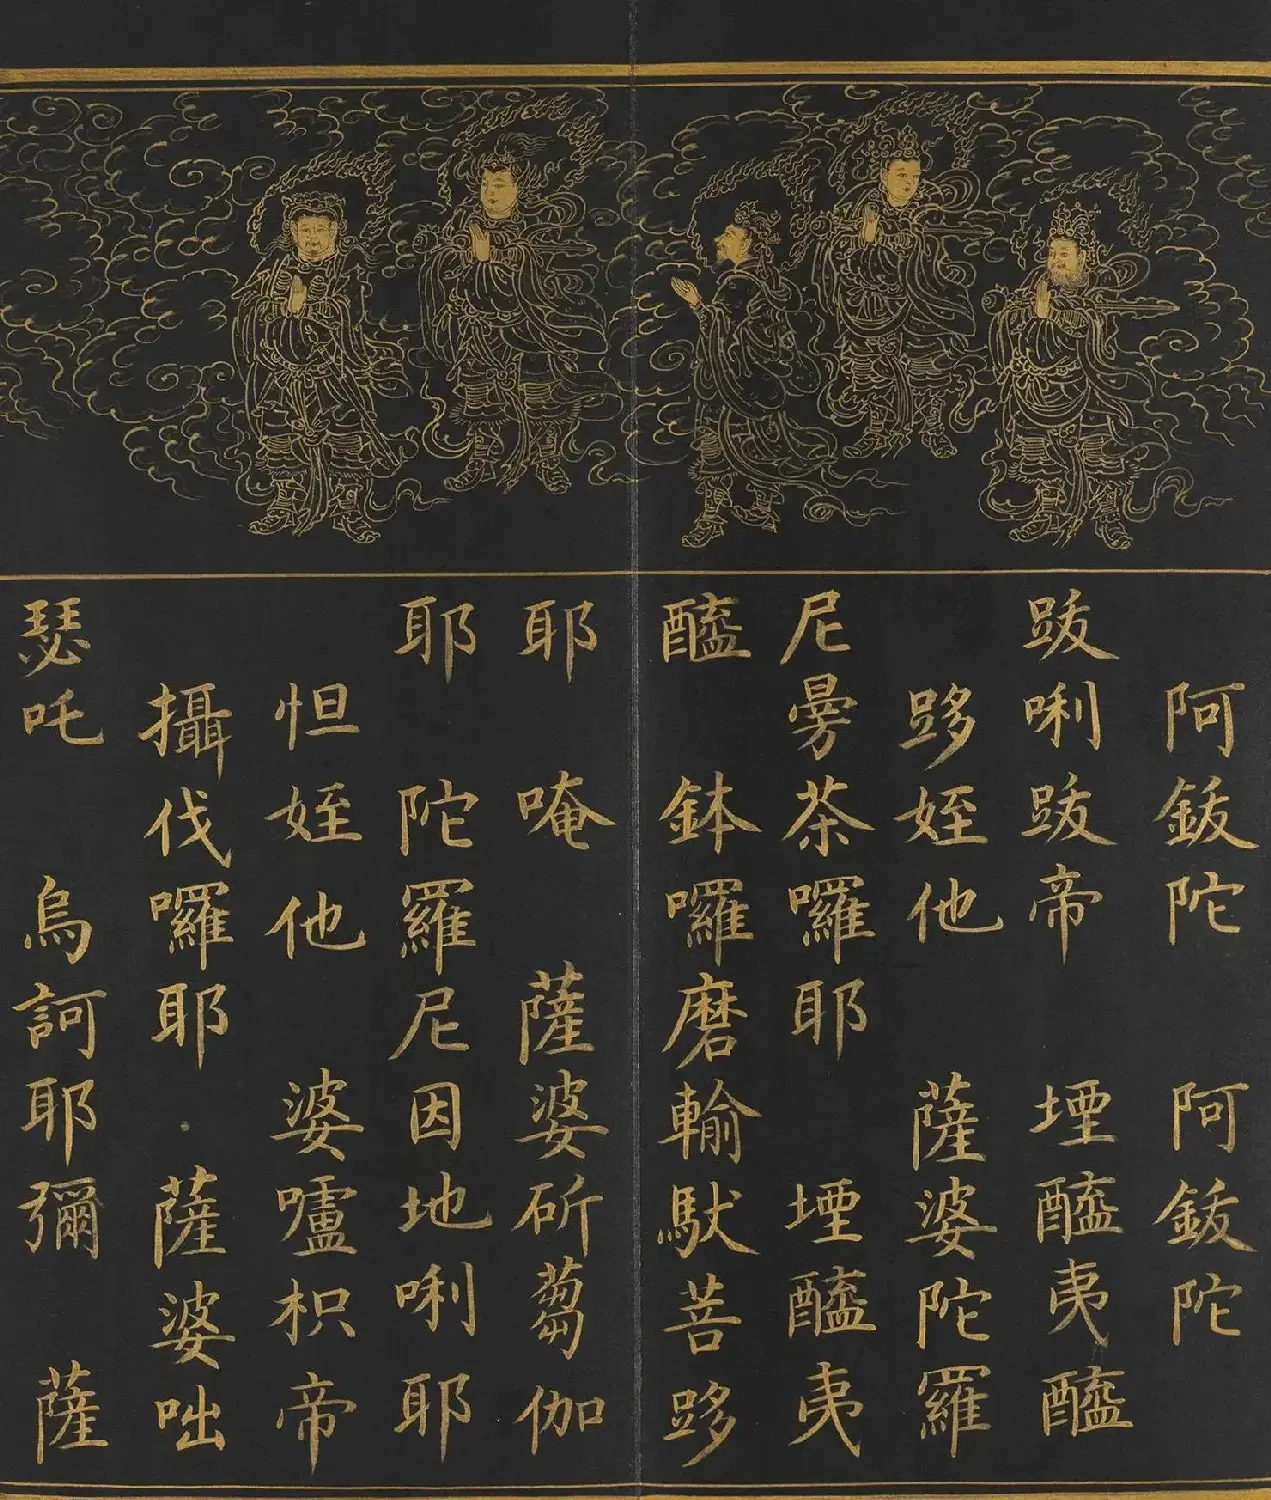 阿鈸陀 阿鈸陀
跋唎跋帝 堙醯夷醯
跢姪他 薩婆陀羅
尼曼茶囉耶 堙醯夷
醯 鉢囉磨輸馱菩跢
耶 唵 薩婆斫蒭伽
耶 陀羅尼因地唎耶
怛姪他 婆嚧枳帝
攝伐囉耶 薩婆咄
瑟吒 烏訶耶彌 薩